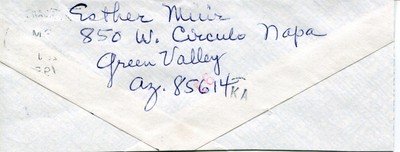 Esther Muir
850 W. Circulo Napa
Green Valley
Az. 85614
KA